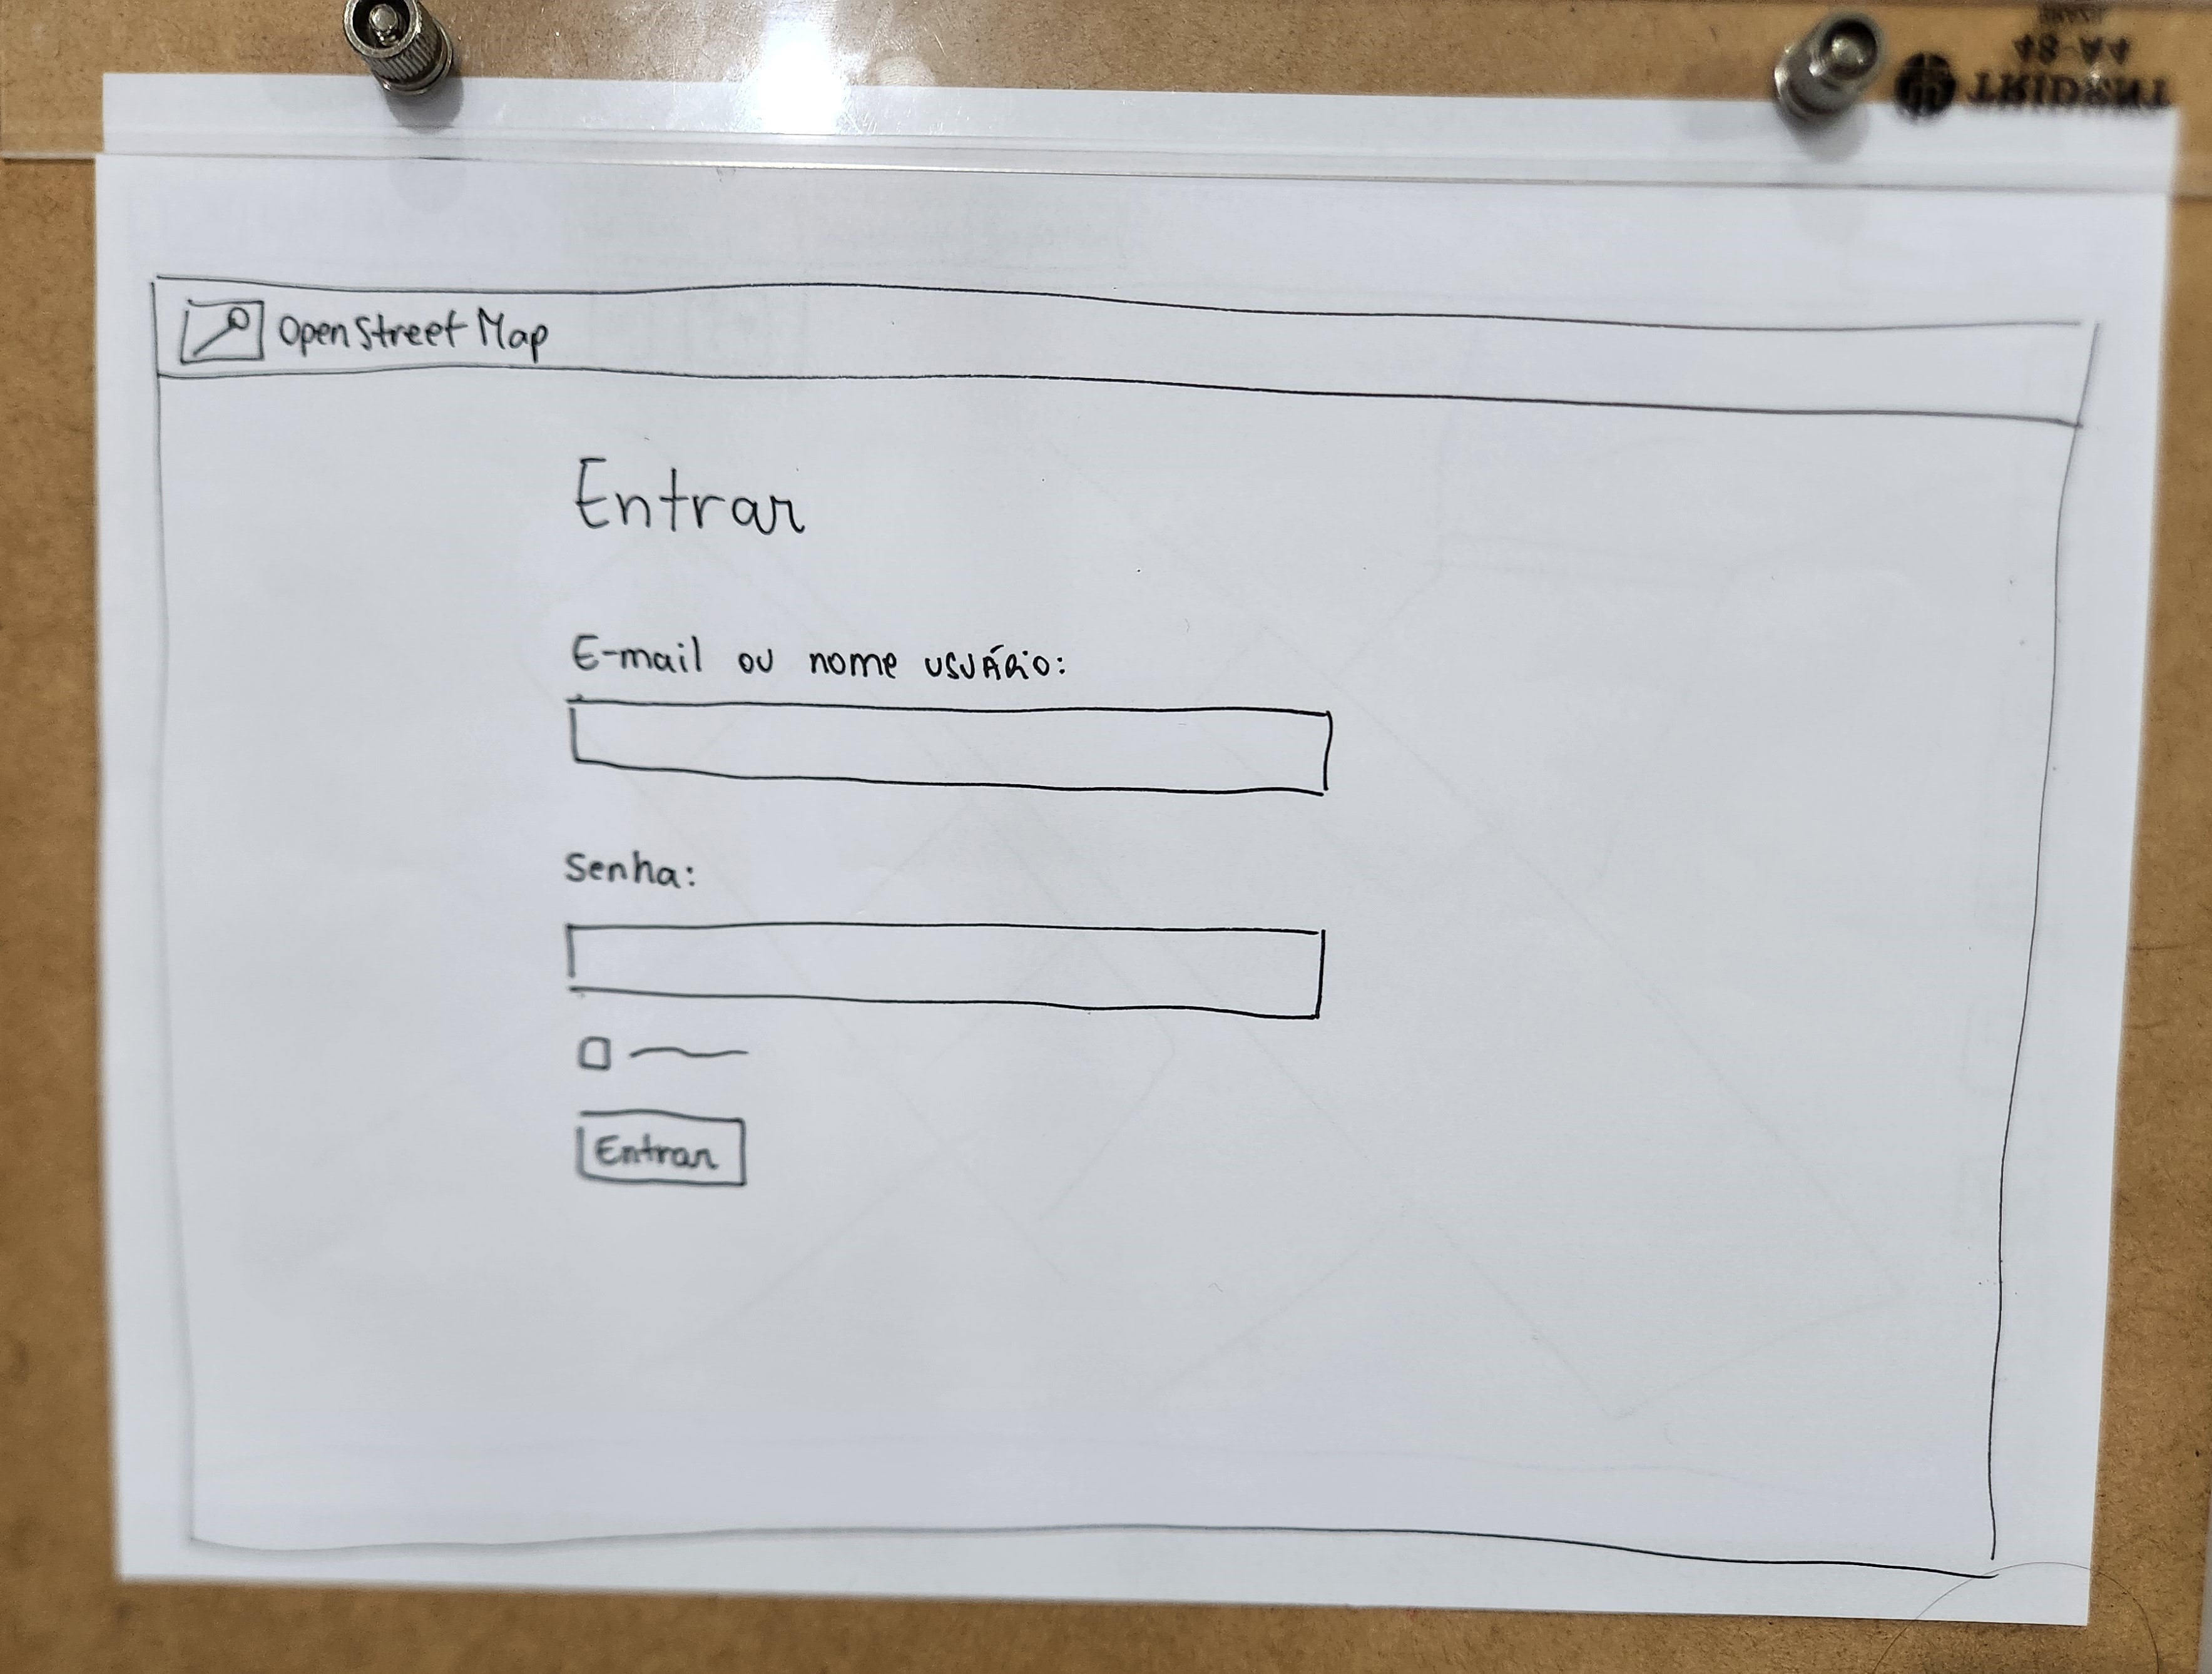 48-A4
TRIDENT
OpenStreet Map
Entrar
E-mail ou nome usuário:
Senha:
Entrar